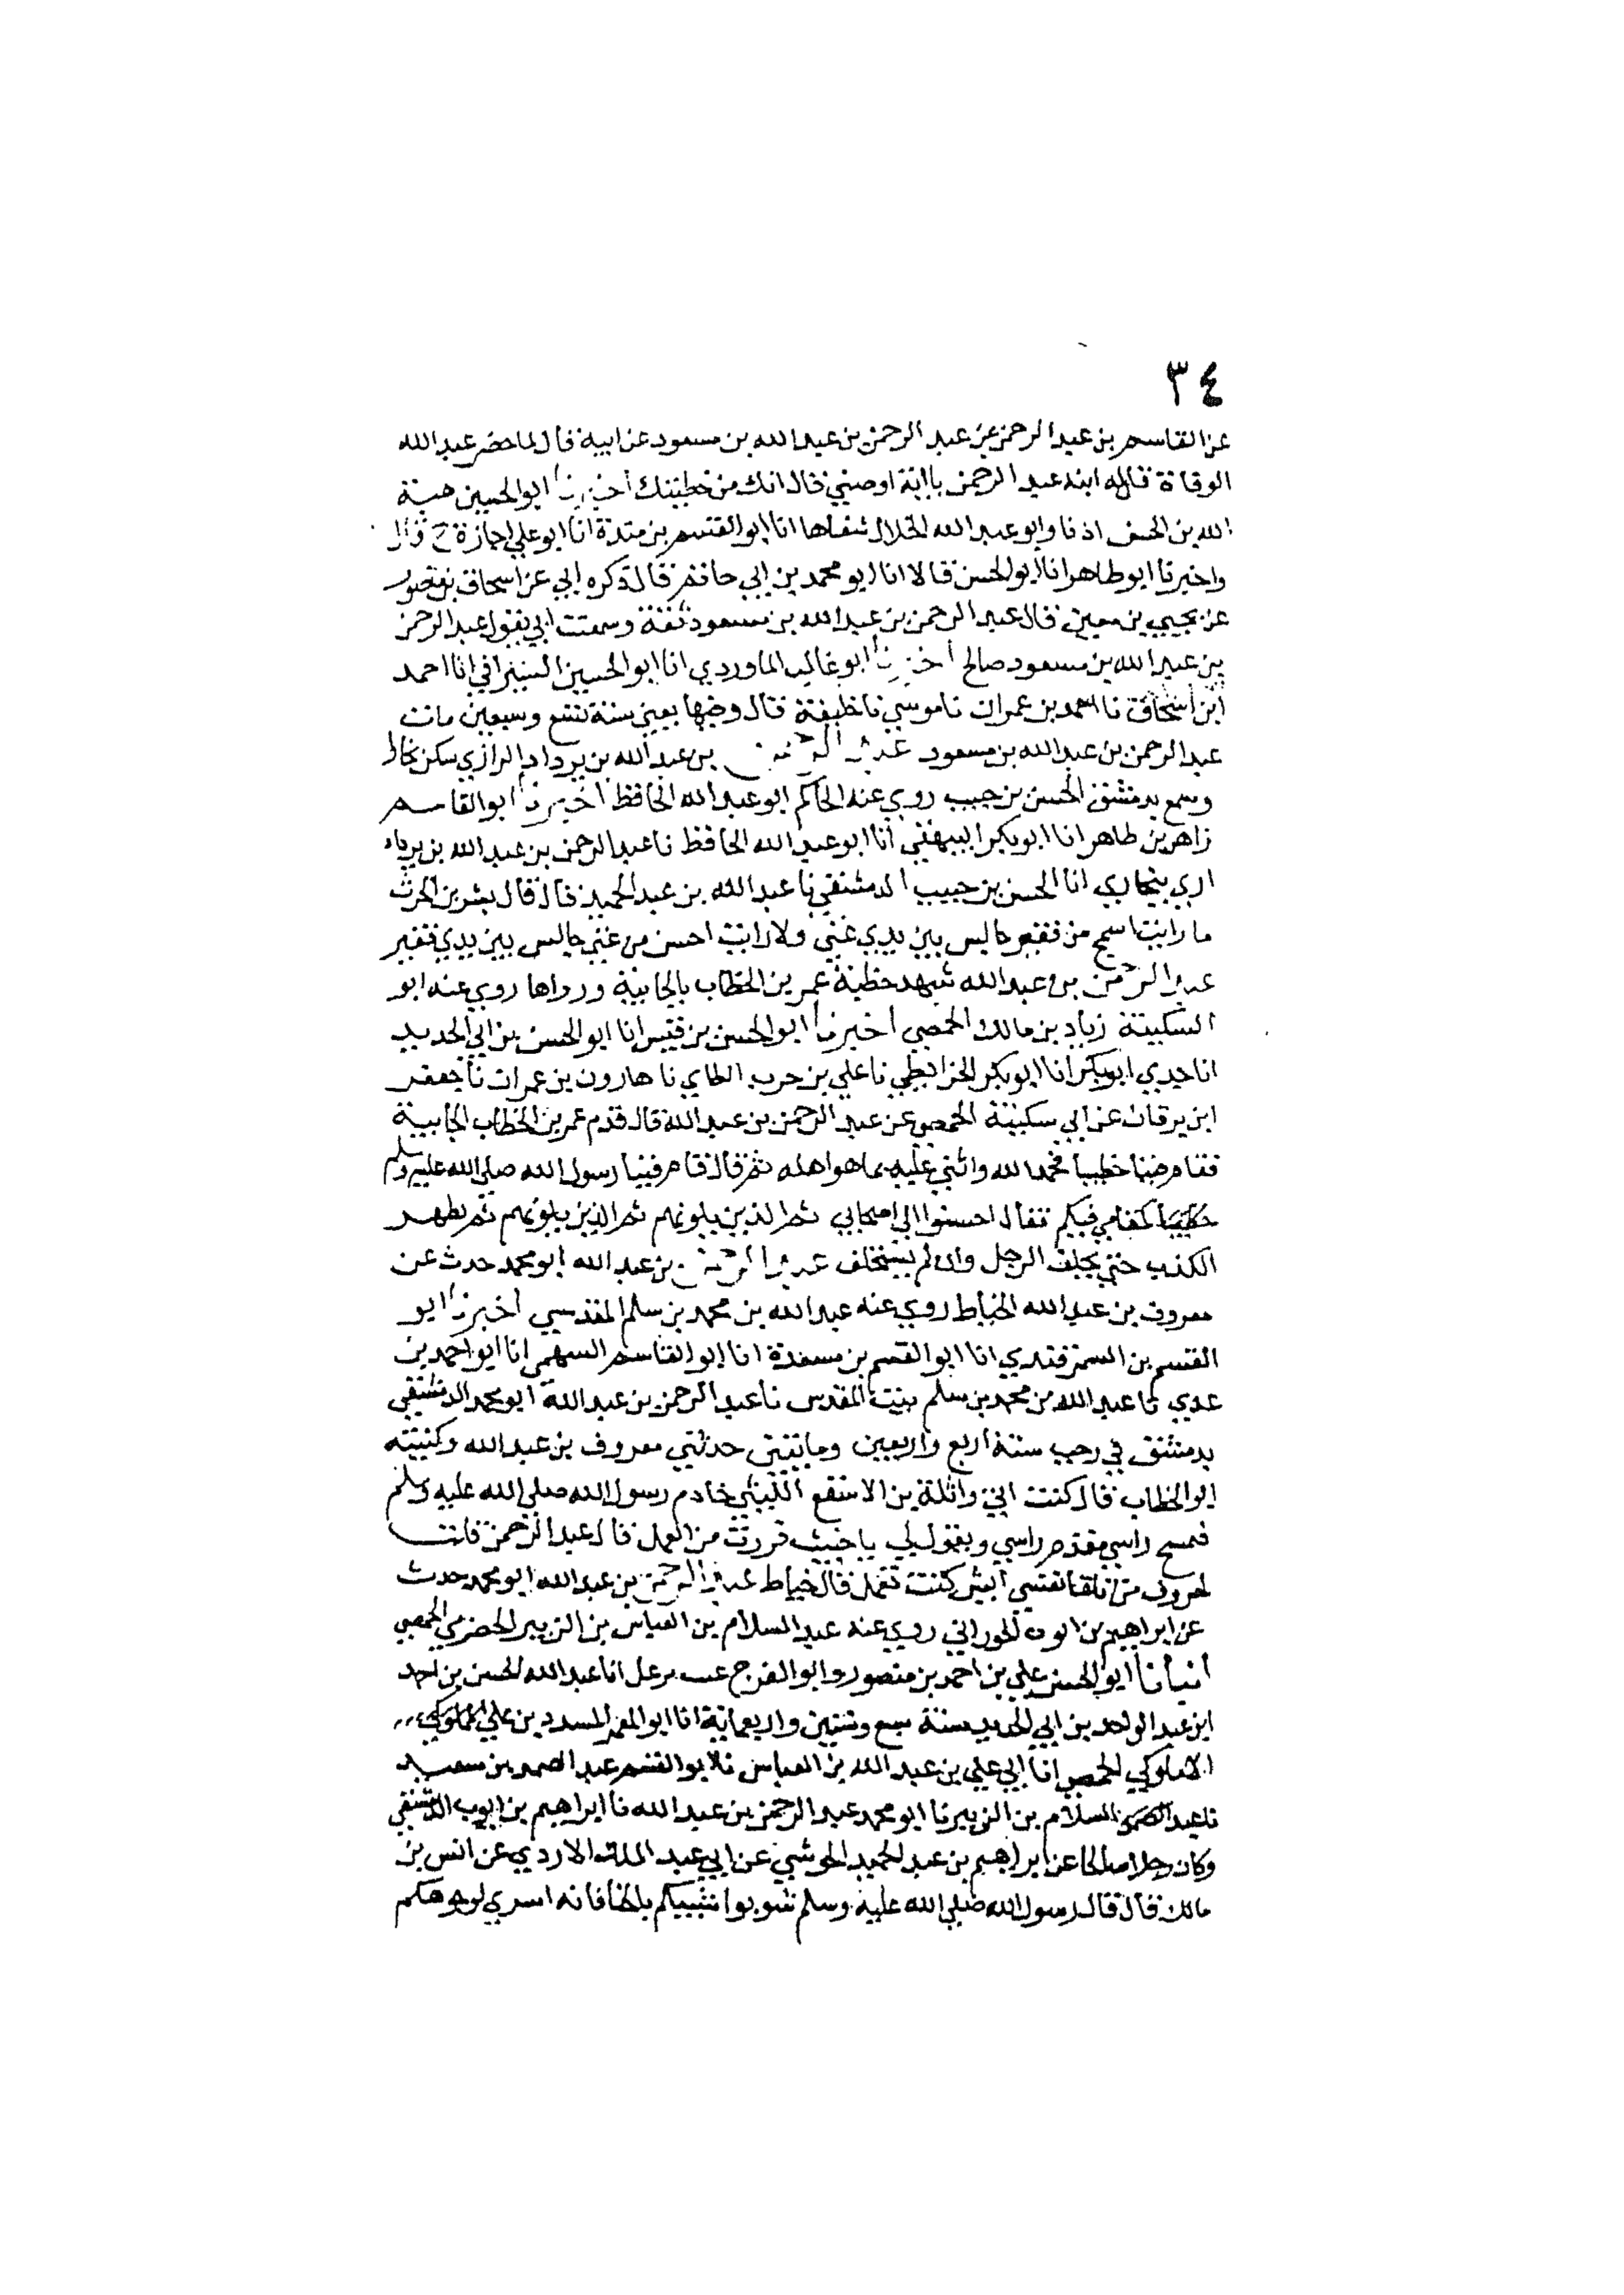 ٣٤
عن القاسم بن عبد الرحمن عن عبد الرحمن بن عبد الله بن مسعود عن ابيه قال لما حضر عبد الله
الوفاة قال له ابنه عبد الرحمن يا ابة اوصني قال ابك من خطيئتك أخبرنا ابو الحسين هبة
الله بن الحسن اذنا وابو عبد الله الخلال شفاها انا ابو القسم بن مندة انا ابو علي اجازة ح قال
واخبرنا ابو طاهر انا ابو الحسن قالا انا ابو محمد بن ابي حاتم قال ذكره ابي عن اسحاق بن منصور
عن يحيى بن معين قال عبد الرحمن بن عبد الله بن مسعود ثقة وسمعت ابي يقول عبد الرحمن
بن عبد الله بن مسعود صالح أخبرنا ابو غالب الماوردي انا ابو الحسين السيرافي انا احمد
ابن اسحاق نا احمد بن عمران نا موسي نا خليفة قال وفيها يعني سنة تسع وسبعين مات
عبد الرحمن بن عبد الله بن مسعود عبد الرحمن بن عبد الله بن يزداد الرازي سكن بخارا
وسمع بدمشق الحسن بن حبيب روي عنه الحاكم ابو عبد الله الحافظ أخبرنا ابو القاسم
زاهر بن طاهر انا ابو بكر البيهقي انا ابو عبد الله الحافظ نا عبد الرحمن بن عبد الله بن يزداد
الرازي ببخاري انا الحسن بن حبيب الدمشقي نا عبد الله بن عبد الحميد قال قال بشر بن الحرث
ما رايت اسمج من فقير جالس بين يدي غني ولا رايت احسن من غني جالس بين يدي فقير
عبد الرحمن بن عبد الله شهد خطبة عمر بن الخطاب بالجابية ورواها روي عنه ابو
السكينة زياد بن مالك الحمصي أخبرنا ابو الحسن بن قبيس انا ابو الحسن بن ابي الحديد
انا جدي ابو بكر انا ابو بكر الخرائطي نا علي بن حرب الطاي نا هارون بن عمران نا جعفر
ابن برقان عن ابي سكينة الحمصي عن عبد الرحمن بن عبد الله قال قدم عمر بن الخطاب الجابية
فقام فينا خطيبا فحمد الله واثني عليه بما هو اهله ثم قال قام فينا رسول الله صلى الله عليه وسلم
كمقامي فيكم فقال احسنوا الي اصحابي ثم الذين يلونهم ثم الذين يلونهم ثم يظهر
الكذب حتي يحلف الرجل وان لم يستحلف عبد الرحمن بن عبد الله ابو محمد حدث عن
معروف بن عبد الله الخياط روي عنه عبد الله بن محمد بن سلم المقدسي أخبرنا ابو
القسم بن السمرقندي انا ابو القسم بن مسعدة انا ابو القاسم السهمي انا ابو احمد بن
عدي نا عبد الله بن محمد بن سلم ببيت المقدس نا عبد الرحمن بن عبد الله ابو محمد الدمشقي
بدمشق في رجب سنة اربع واربعين وماتين حدثني معروف بن عبد الله وكنيته
ابو الخطاب قال كنت اتي واثلة بن الاسقع الليثي خادم رسول الله صلى الله عليه وسلم
فمسح راسي مقدم راسي ويقول لي يا خبيث فررت من العمل قال عبد الرحمن قلت
لمعروف من تلقا نفسي ايش كنت تعمل قال خياط عبد الرحمن بن عبد الله ابو محمد حدث
عن ابراهيم بن ايوب الحوراني روي عنه عبد السلام بن العباس بن الزبير الحضرمي الحمصي
أنبأنا ابو الحسن علي بن احمد بن منصور وابو الفرج انا عبد الله الحسن بن احمد
ابن عبد الواحد بن ابي الحديد سنة سبع وستين واربعماية انا ابو المعمر المسدد بن علي
الاملوكي الحمصي انا ابي علي بن عبد الله بن العباس نا ابو القسم عبد الصمد بن سعيد
نا عبد السلام بن الزبير نا ابو محمد عبد الرحمن بن عبد الله نا ابراهيم بن ايوب الدمشقي
وكان رجلا صالحا عن ابراهيم بن عبد الحميد الجرشي عن ابي عبد الملك الازدي عن انس بن
مالك قال قال رسول الله صلى الله عليه وسلم شوبوا شيبكم بالحنا فانه اسري لوجوهكم